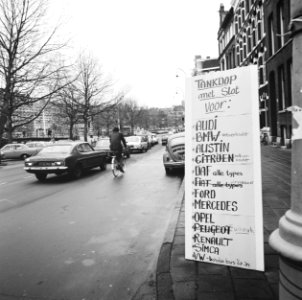 TANKDOP
met Slot
Voor:
AUDI
BMW
AUSTIN
CITROËN
DAF alle types
FIAT alle types
FORD
MERCEDES
OPEL
PEUGEOT
RENAULT
SIMCA
VW